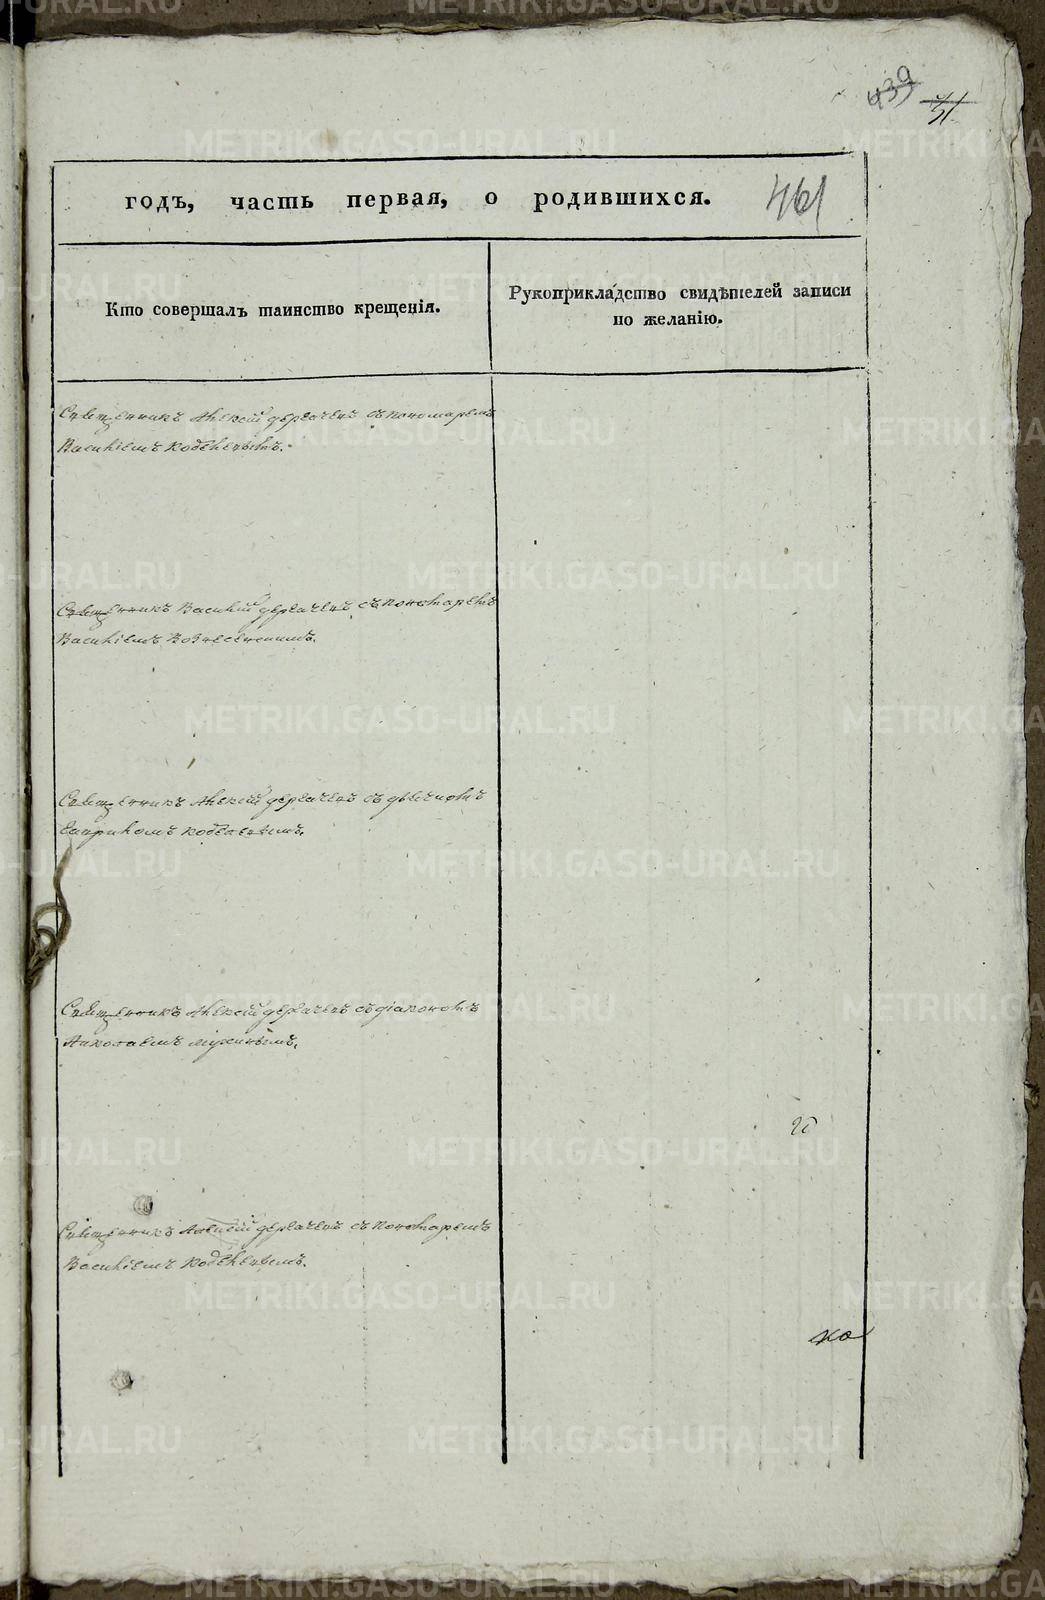 439
461
годъ, часть первая, о родившихся.
Кто совершалъ таинство крещенія.
Рукоприкладство свидѣтелей записи
по желанію.
Священникъ Алексій Дергачевъ съ пономаремъ
Василіемъ
Священникъ Василій Дергачевъ съ пономаремъ
Василіемъ Вознесенскимъ.
Священникъ Алексій Дергачевъ съ дьячкомъ
Священникъ Алексій Дергачевъ съ діакономъ
Николаемъ
Священникъ Алексій Дергачевъ съ пономаремъ
Василіемъ
METRIKI.GASO-URAL.RU